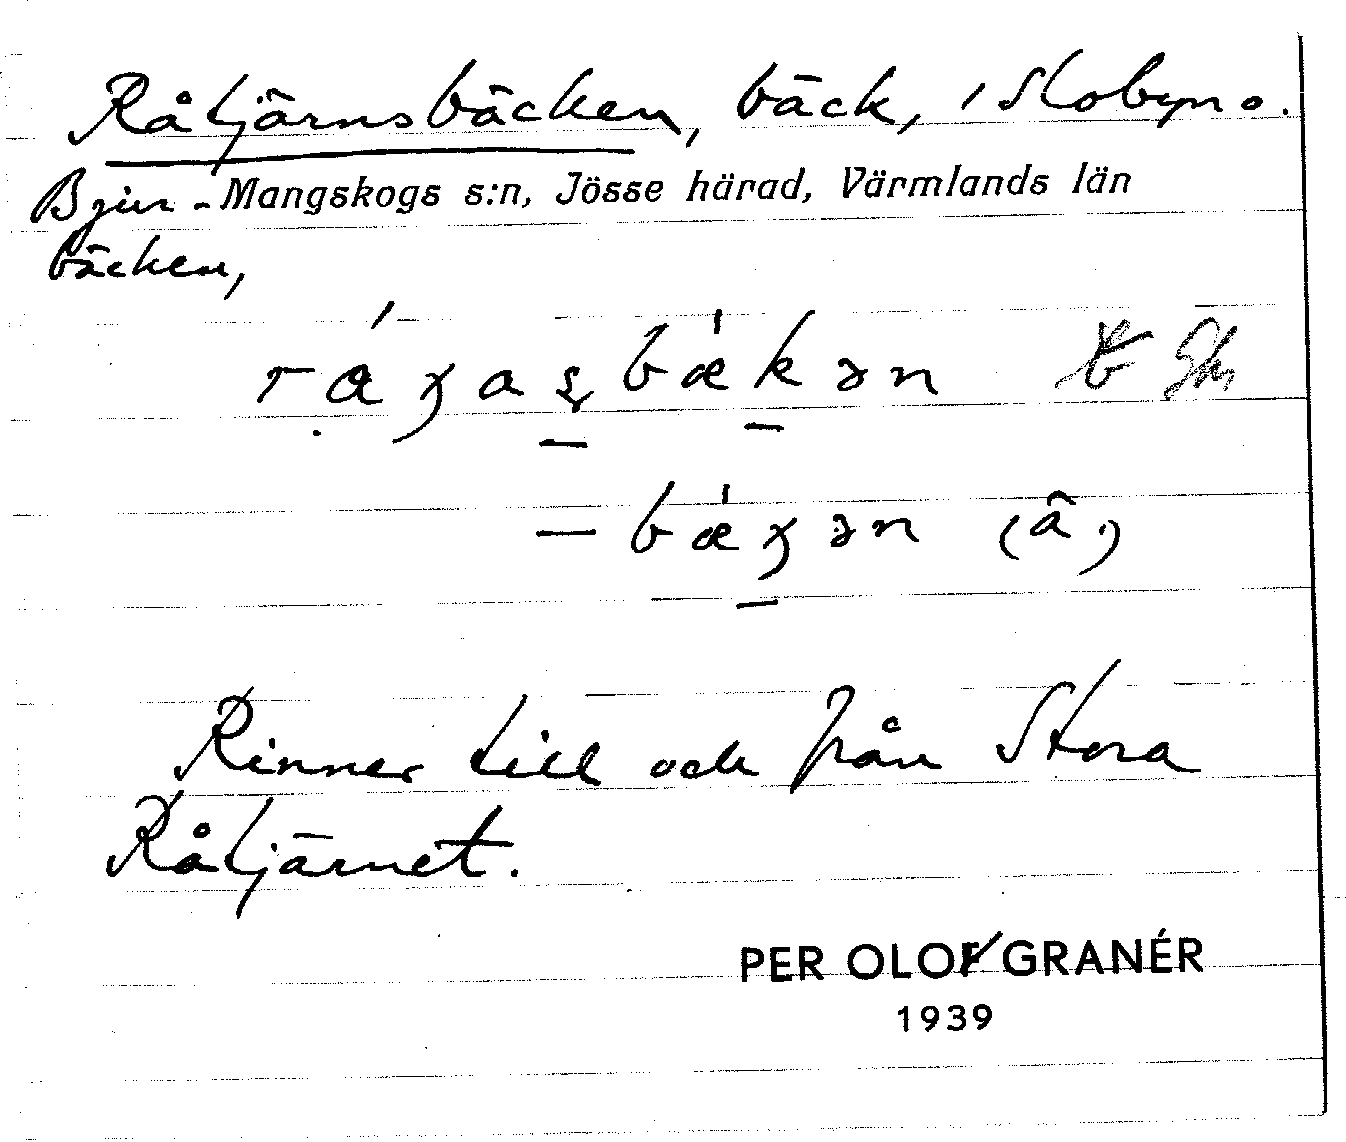 Råtjärnsbäcken, bäck, i Slobyn o.
Bjur-
Mangskogs s:n, Jösse härad, Värmlands län
bäcken,
(å)
Rinner till och från Stora
Råtjärnet.
PER OLOF GRANÉR
1939